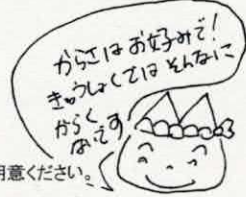 からさはお好みで!
きゅうしょくではそんなに
からく
ないです
用意ください。